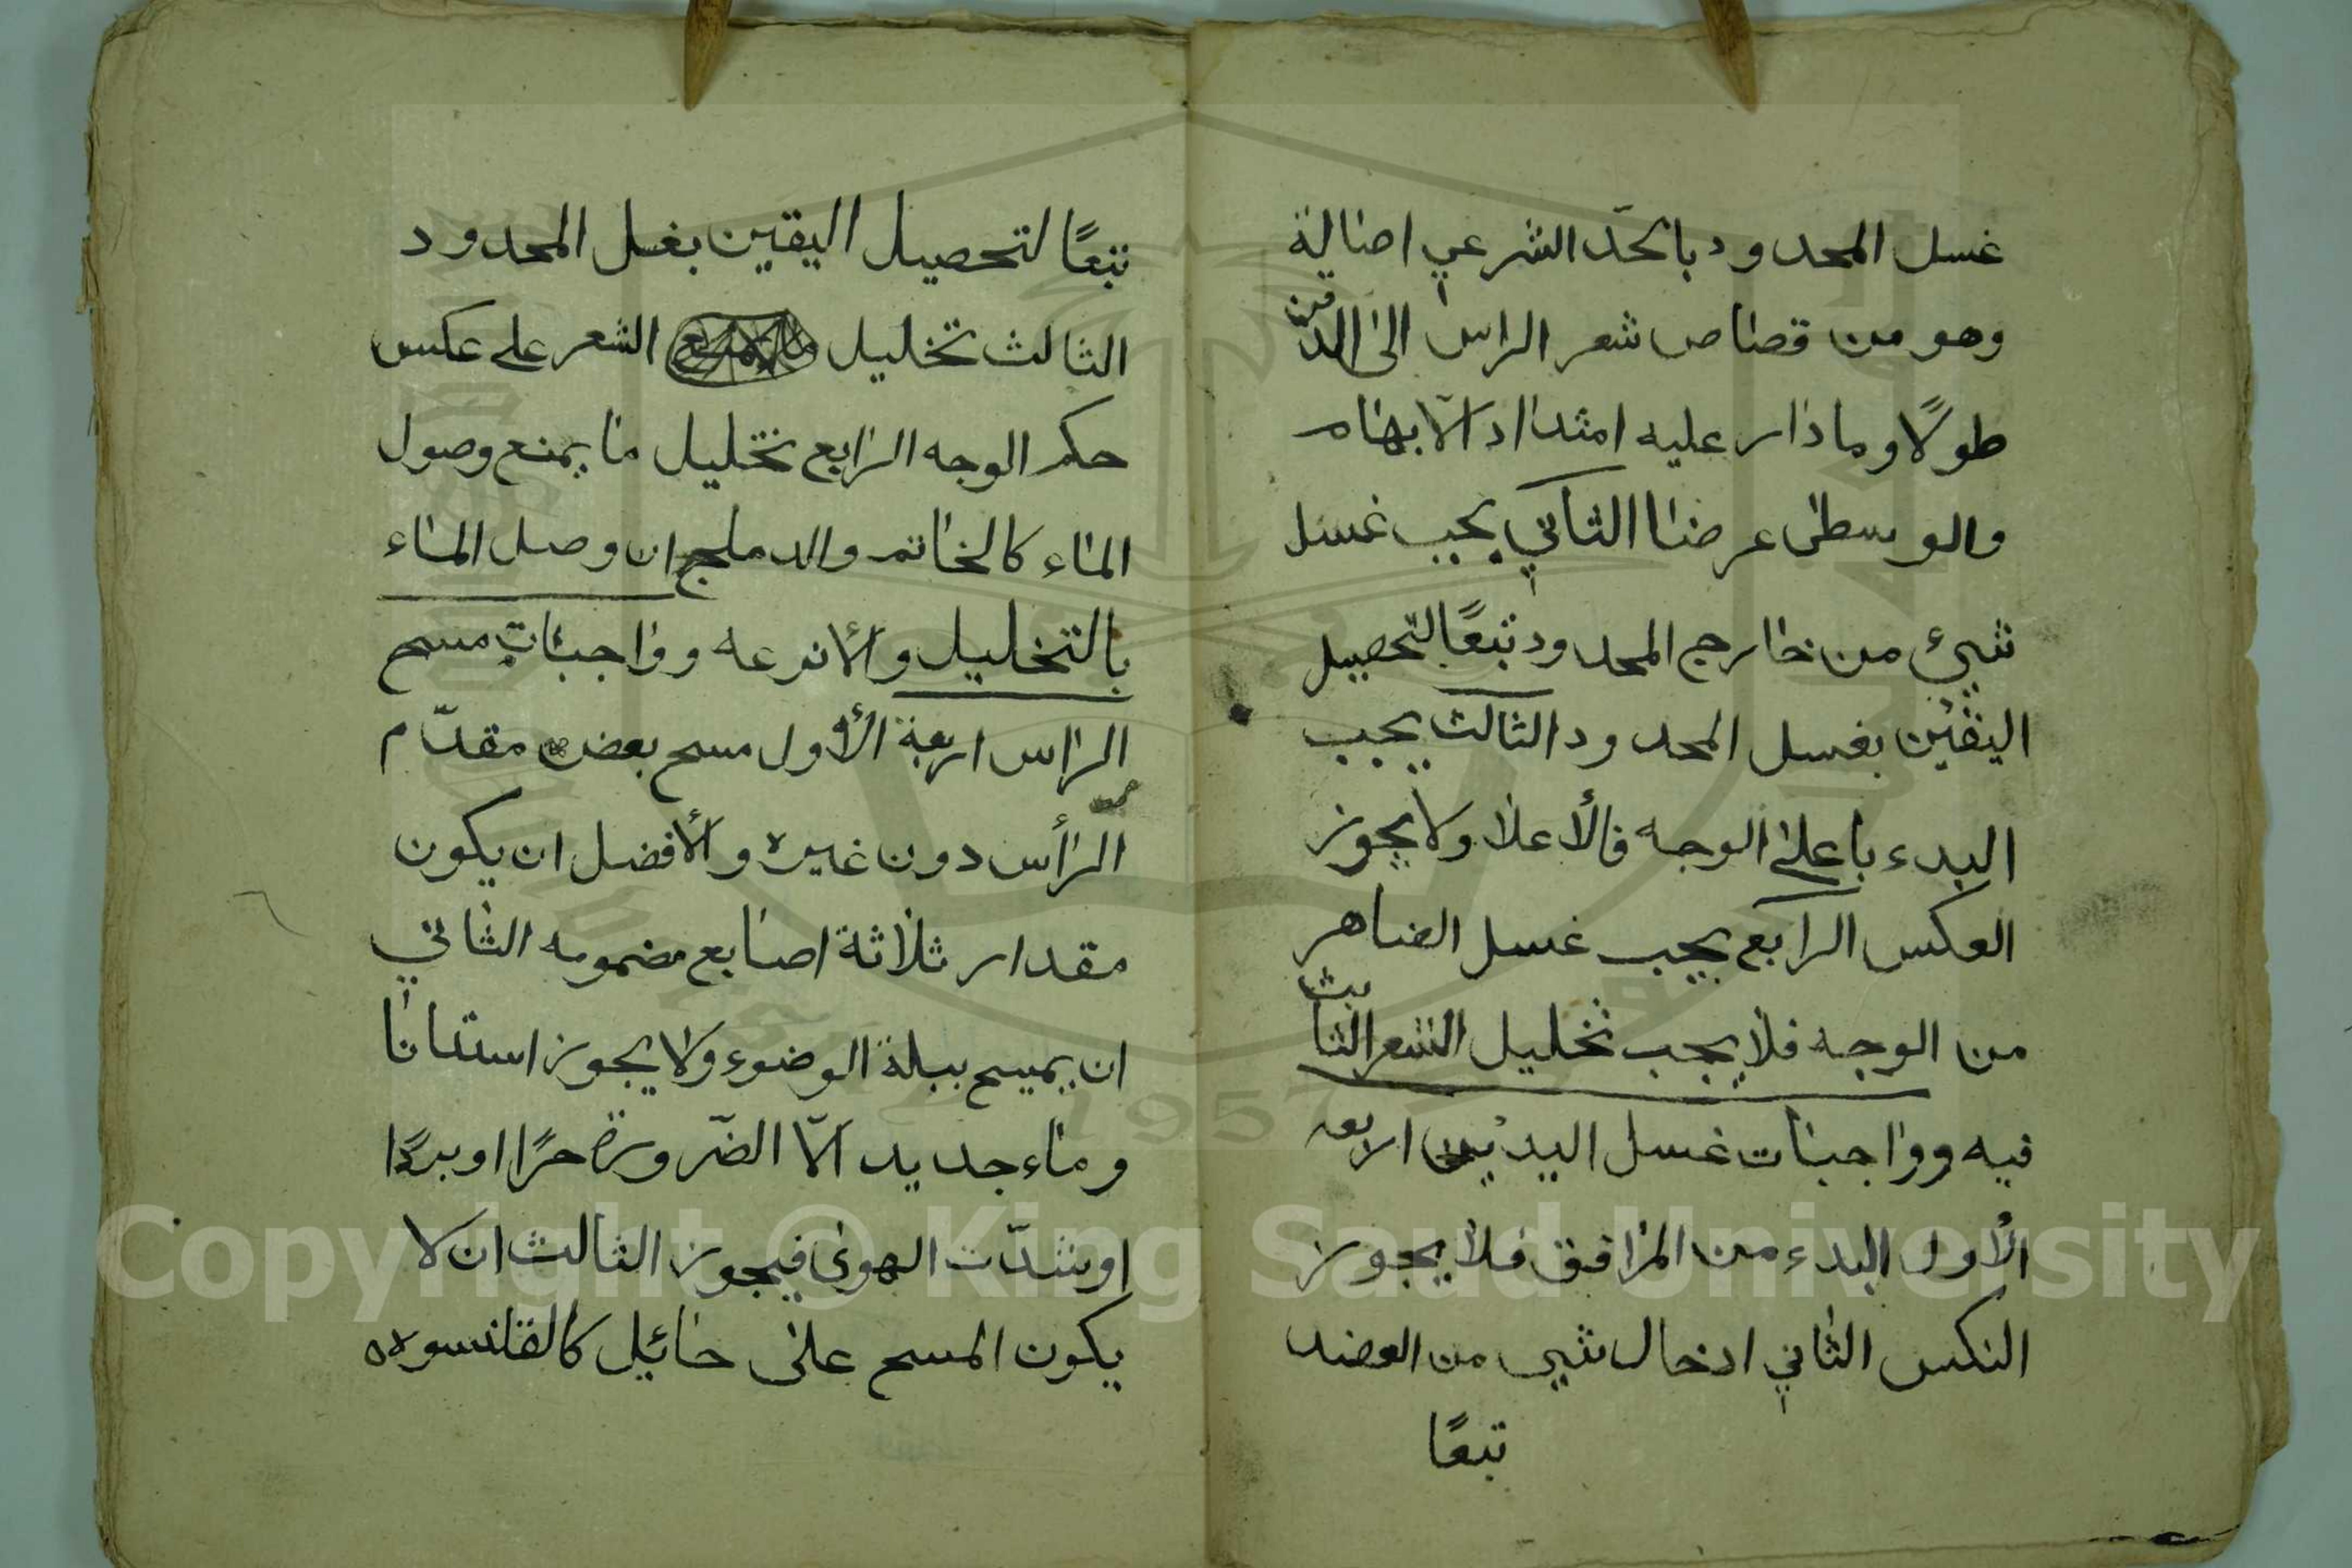 غسل المحدود بالحدّ الشرعي اصالية
وهو من قصاص شعر الراس الى الذقن
طولًا وما دار عليه امتداد الابهام
والوسطى عرضا الثاني يجب غسل
شيئ من خارج المحدود تبعًا لتحصيل
اليقين بغسل المحدود الثالث يجب
البدء باعلى الوجه فالأعلا ولا يجوز
العكس الرابع يجب غسل الضاهر
من الوجه فلا يجب تخليل الشعر النابث
فيه وواجبات غسل اليدين اربعه
الأول البدء من المرافق فلا يجوز
النكس الثاني ادخال شيي من العضد
تبعًا
تبعًا لتحصيل اليقين بغسل المحدود
الثالث تخليل الشعر على عكس
حكم الوجه الرابع تخليل ما يمنع وصول
الماء كالخاتم والدملج ان وصل الماء
بالتخليل والأنزعه وواجبات مسح
الراس اربعة الأول مسح بعض مقدّم
الرأس دون غيره والأفضل ان يكون
مقدار ثلاثة اصابع مضمومه الثاني
ان يمسح ببلة الوضوء ولا يجوز استئنافا
وماء جديد الّا الضّرورة حرًا او بردًا
او شدّت الهوى فيجوز الثالث ان لا
يكون المسح على حائيل كالقلنسوه
Copyright © King Saud University
1957